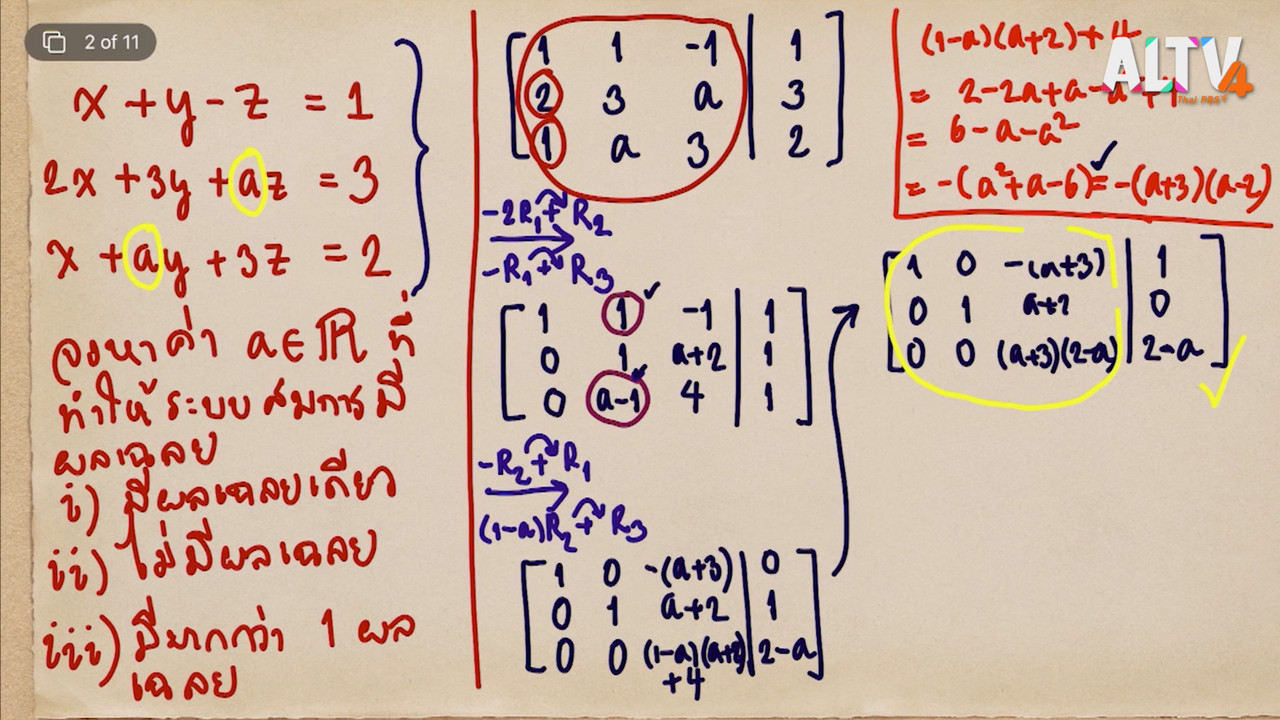 2 of 11
x + y - z = 1
2x + 3y + az = 3
x + ay + 3z = 2
จงหาค่า a ∈ ℝ ที่
ทำให้ระบบสมการมี
ผลเฉลย
i) มีผลเฉลยเดียว
ii) ไม่มีผลเฉลย
iii) มีมากกว่า 1 ผล
เฉลย
1 1 -1 | 1
2 3 a | 3
1 a 3 | 2
-2R₁ + R₂
-R₁ + R₃
1 1 -1 | 1
0 1 a+2 | 1
0 a-1 4 | 1
-R₂ + R₁
(1-a)R₂ + R₃
1 0 -(a+3) | 0
0 1 a+2 | 1
0 0 (1-a)(a+2) | 2-a
+4
(1-a)(a+2)+4
= 2-2a+a-a²+4
= 6-a-a²
= -(a²+a-6) = -(a+3)(a-2)
1 0 -(a+3) | 1
0 1 a+2 | 0
0 0 (a+3)(2-a) | 2-a
ALTV
4
Thai PBS